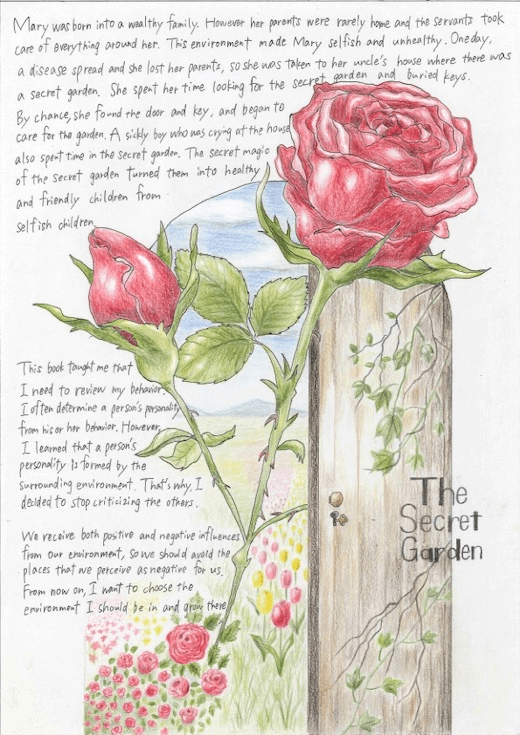 Mary was born into a wealthy family. However her parents were rarely home and the servants took
care of everything around her. This environment made Mary selfish and unhealthy. One day,
a disease spread and she lost her parents, so she was taken to her uncle's house where there was
a secret garden. She spent her time looking for the secret garden and buried keys.
By chance, she found the door and key, and began to
care for the garden. A sickly boy who was crying at the house
also spent time in the secret garden. The secret magic
of the secret garden turned them into healthy
and friendly children from
selfish children.
This book taught me that
I need to review my behavior.
I often determine a person's personality
from his or her behavior. However,
I learned that a person's
personality is formed by the
surrounding environment. That's why, I
decided to stop criticizing the others.
We receive both positive and negative influences
from our environment, so we should avoid the
places that we perceive as negative for us.
From now on, I want to choose the
environment I should be in and grow there
The
Secret
Garden